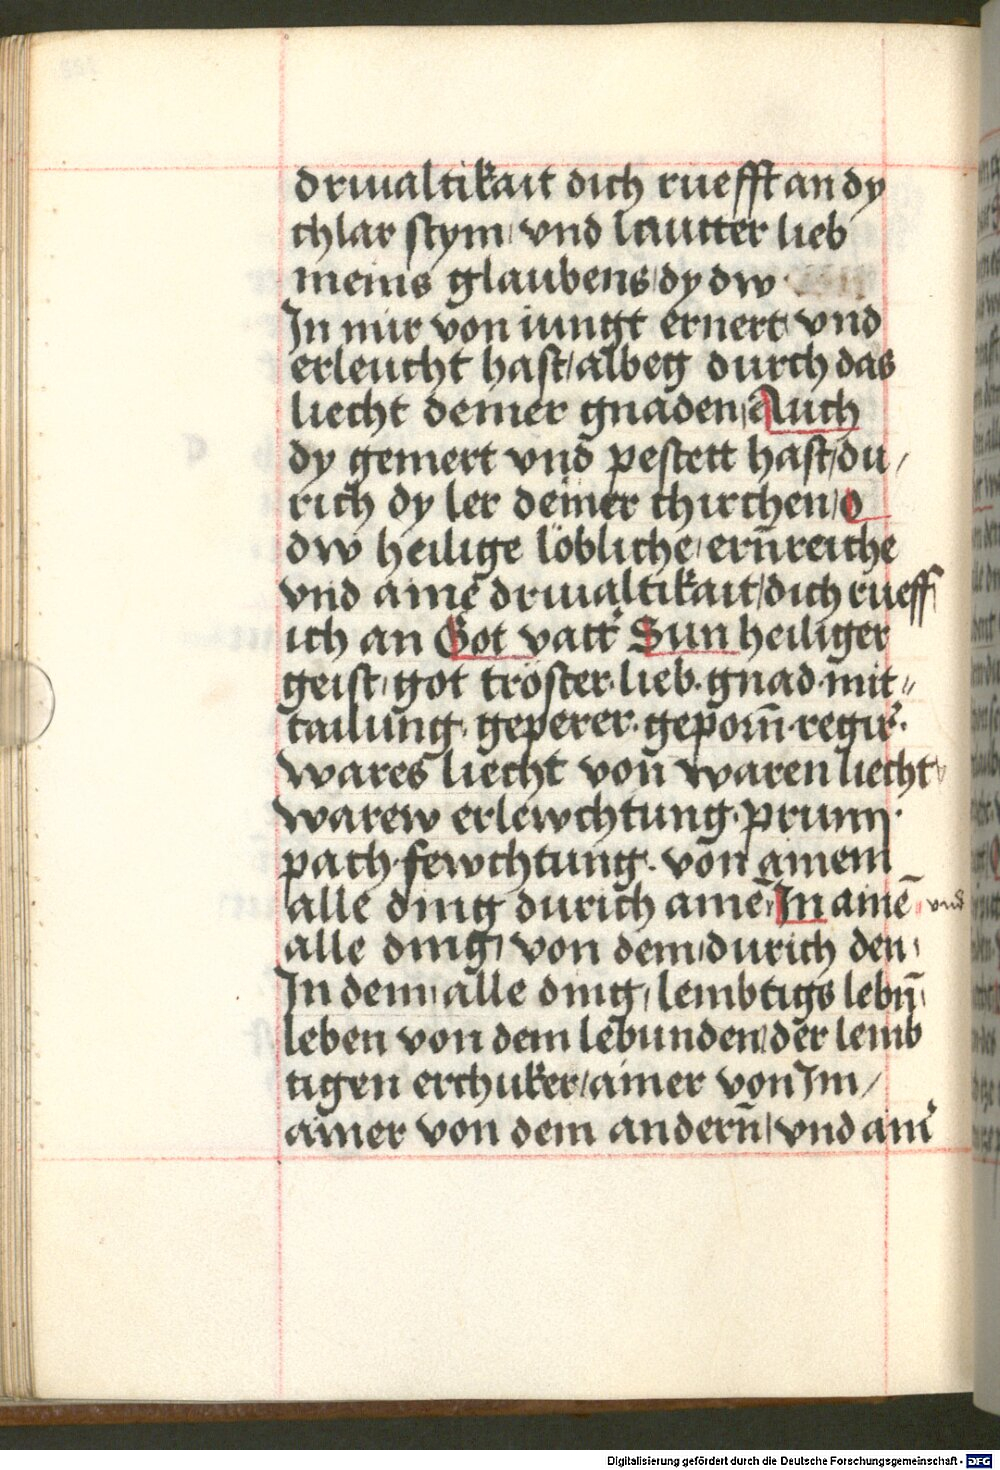 driualtikait dich ruefft an dy
chlar stym vnd lautter lieb
meins glaubens dy dw
In mir von iungt ernert vnd
erleucht hast albeg durch das
liecht deiner gnaden Auch
dy gemert vnd pestett hast du/
rich dy ler deiner chirchen o
dw heilige löbliche ern̄reiche
vnd ainē driualtikait dich rueff
ich an Got vatr̓ Sun heiliger
geist got tröster·lieb·gnad·mit//
tailung·geperer·geporn̄·regir̓·
wares liecht von waren liecht
warew erlewchtung·prunn·
pach·fewchtung·von ainem
alle ding durich ainē In ainē vnd
alle ding von dem durich den
In dem alle ding lembtigs lebn̄
leben von dem lebunden der lemb
tigen erchuker ainer von Im/
ainer von dem andern̄ vnd ain̓
Digitalisierung gefördert durch die Deutsche Forschungsgemeinschaft - DFG